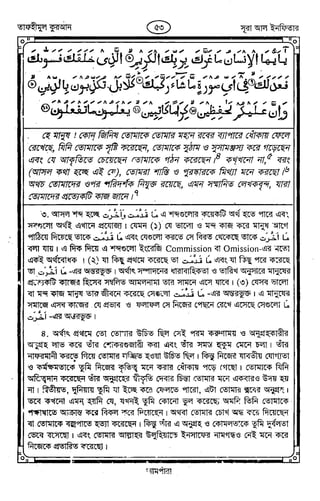 তাফহীমুল কুরআন
৫৩
সূরা আল ইনফিতার
يٰٓاَيُّهَا الْاِنْسَانُ مَا غَرَّكَ بِرَبِّكَ الْكَرِيْمِ ۙ الَّذِيْ خَلَقَكَ فَسَوّٰىكَ
فَعَدَلَكَ ۙ فِيْٓ اَيِّ صُوْرَةٍ مَّا شَآءَ رَكَّبَكَ ۗ كَلَّا بَلْ تُكَذِّبُوْنَ بِالدِّيْنِ ۙ
وَاِنَّ عَلَيْكُمْ لَحٰفِظِيْنَ ۙ كِرَامًا كَاتِبِيْنَ ۙ يَعْلَمُوْنَ مَا تَفْعَلُوْنَ
হে মানুষ ! কোন্ জিনিষ তোমাকে তোমার মহান রবের ব্যাপারে ধোঁকায় ফেলে
রেখেছে, যিনি তোমাকে সৃষ্টি করেছেন, তোমাকে সুঠাম ও সুসামঞ্জস্য করে গড়েছেন
এবং যে আকৃতিতে চেয়েছেন তোমাকে গঠন করেছেন।৪ কখ্খনো না,৫ বরং
(আসল কথা হচ্ছে এই যে), তোমরা শাস্তি ও পুরস্কারকে মিথ্যা মনে করছো।৬
অথচ তোমাদের ওপর পরিদর্শক নিযুক্ত রয়েছে, এমন সম্মানিত লেখকবৃন্দ, যারা
তোমাদের প্রত্যেকটি কাজ জানে।৭
৩. আসল শব্দ হচ্ছে مَا قَدَّمَتْ وَاَخَّرَتْ এ শব্দগুলোর কয়েকটি অর্থ হতে পারে এবং
সবগুলো অর্থই এখানে প্রযোজ্য। যেমন (১) যে ভালো ও মন্দ কাজ করে মানুষ আগে
পাঠিয়ে দিয়েছে তাকে مَا قَدَّمَتْ এবং যেগুলো করতে সে বিরত থেকেছে তাকে مَا اَخَّرَتْ
বলা যায়। এ দিক দিয়ে এ শব্দগুলো ইংরেজি Commission ও Omission-এর মতো
একই অর্থবোধক। (২) যা কিছু প্রথমে করেছে তা مَا قَدَّمَتْ এবং যা কিছু পরে করেছে
তা مَا اَخَّرَتْ -এর অন্তরভুক্ত। অর্থাৎ সম্পাদনের ধারাবাহিকতা ও তারিখ অনুসারে মানুষের
প্রত্যেকটি কাজের হিসেব সম্বলিত আমলনামা তার সামনে এসে যাবে। (৩) যেসব ভালো
বা মন্দ কাজ মানুষ তার জীবনে করেছে সেগুলো مَا قَدَّمَتْ -এর অন্তরভুক্ত। এ মানুষের
সমাজে এসব কাজের যে প্রভাব ও ফলাফল সে নিজের পেছনে রেখে এসেছে সেগুলো
مَا اَخَّرَتْ -এর অন্তরভুক্ত।
৪. অর্থাৎ প্রথমে তো তোমার উচিত ছিল সেই পরম করুণাময় ও অনুগ্রহকারীর
অনুগ্রহ লাভ করে তাঁর শোকরগুজারী করা এবং তাঁর সমস্ত হুকুম মেনে চলা। তাঁর
নাফরমানী করতে গিয়ে তোমার লজ্জিত হওয়া উচিত ছিল। কিন্তু নিজের যাবতীয় যোগ্যতা
ও কর্মক্ষমতাকে তুমি নিজের কৃতিত্ব মনে করার ধোঁকায় পড়ে গেছো। তোমাকে যিনি
অস্তিত্বদান করেছেন তাঁর অনুগ্রহের স্বীকৃতি দেবার চিন্তা তোমার মনে একবারও উদয় হয়
না। দ্বিতীয়ত, দুনিয়ায় তুমি যা ইচ্ছে করে ফেলতে পারো, এটা তোমার রবের অনুগ্রহ।
তবে কখনো এমন হয়নি যে, যখনই তুমি কোনো ভুল করেছ; অমনি তিনি তোমাকে
পক্ষাঘাতে আক্রান্ত করে বিকল করে দিয়েছেন। অথবা তোমার চোখ অন্ধ করে দিয়েছেন
বা তোমাকে বজ্রপাতে হত্যা করেছেন। কিন্তু তাঁর এ অনুগ্রহ ও কোমলতাকে তুমি দুর্বলতা
ভেবে বসেছো। এবং তোমার আল্লাহর উলুহিয়াতে ইনসাফের নামগন্ধও নেই মনে করে
নিজেকে প্রতারিত করেছো।
আমপারা